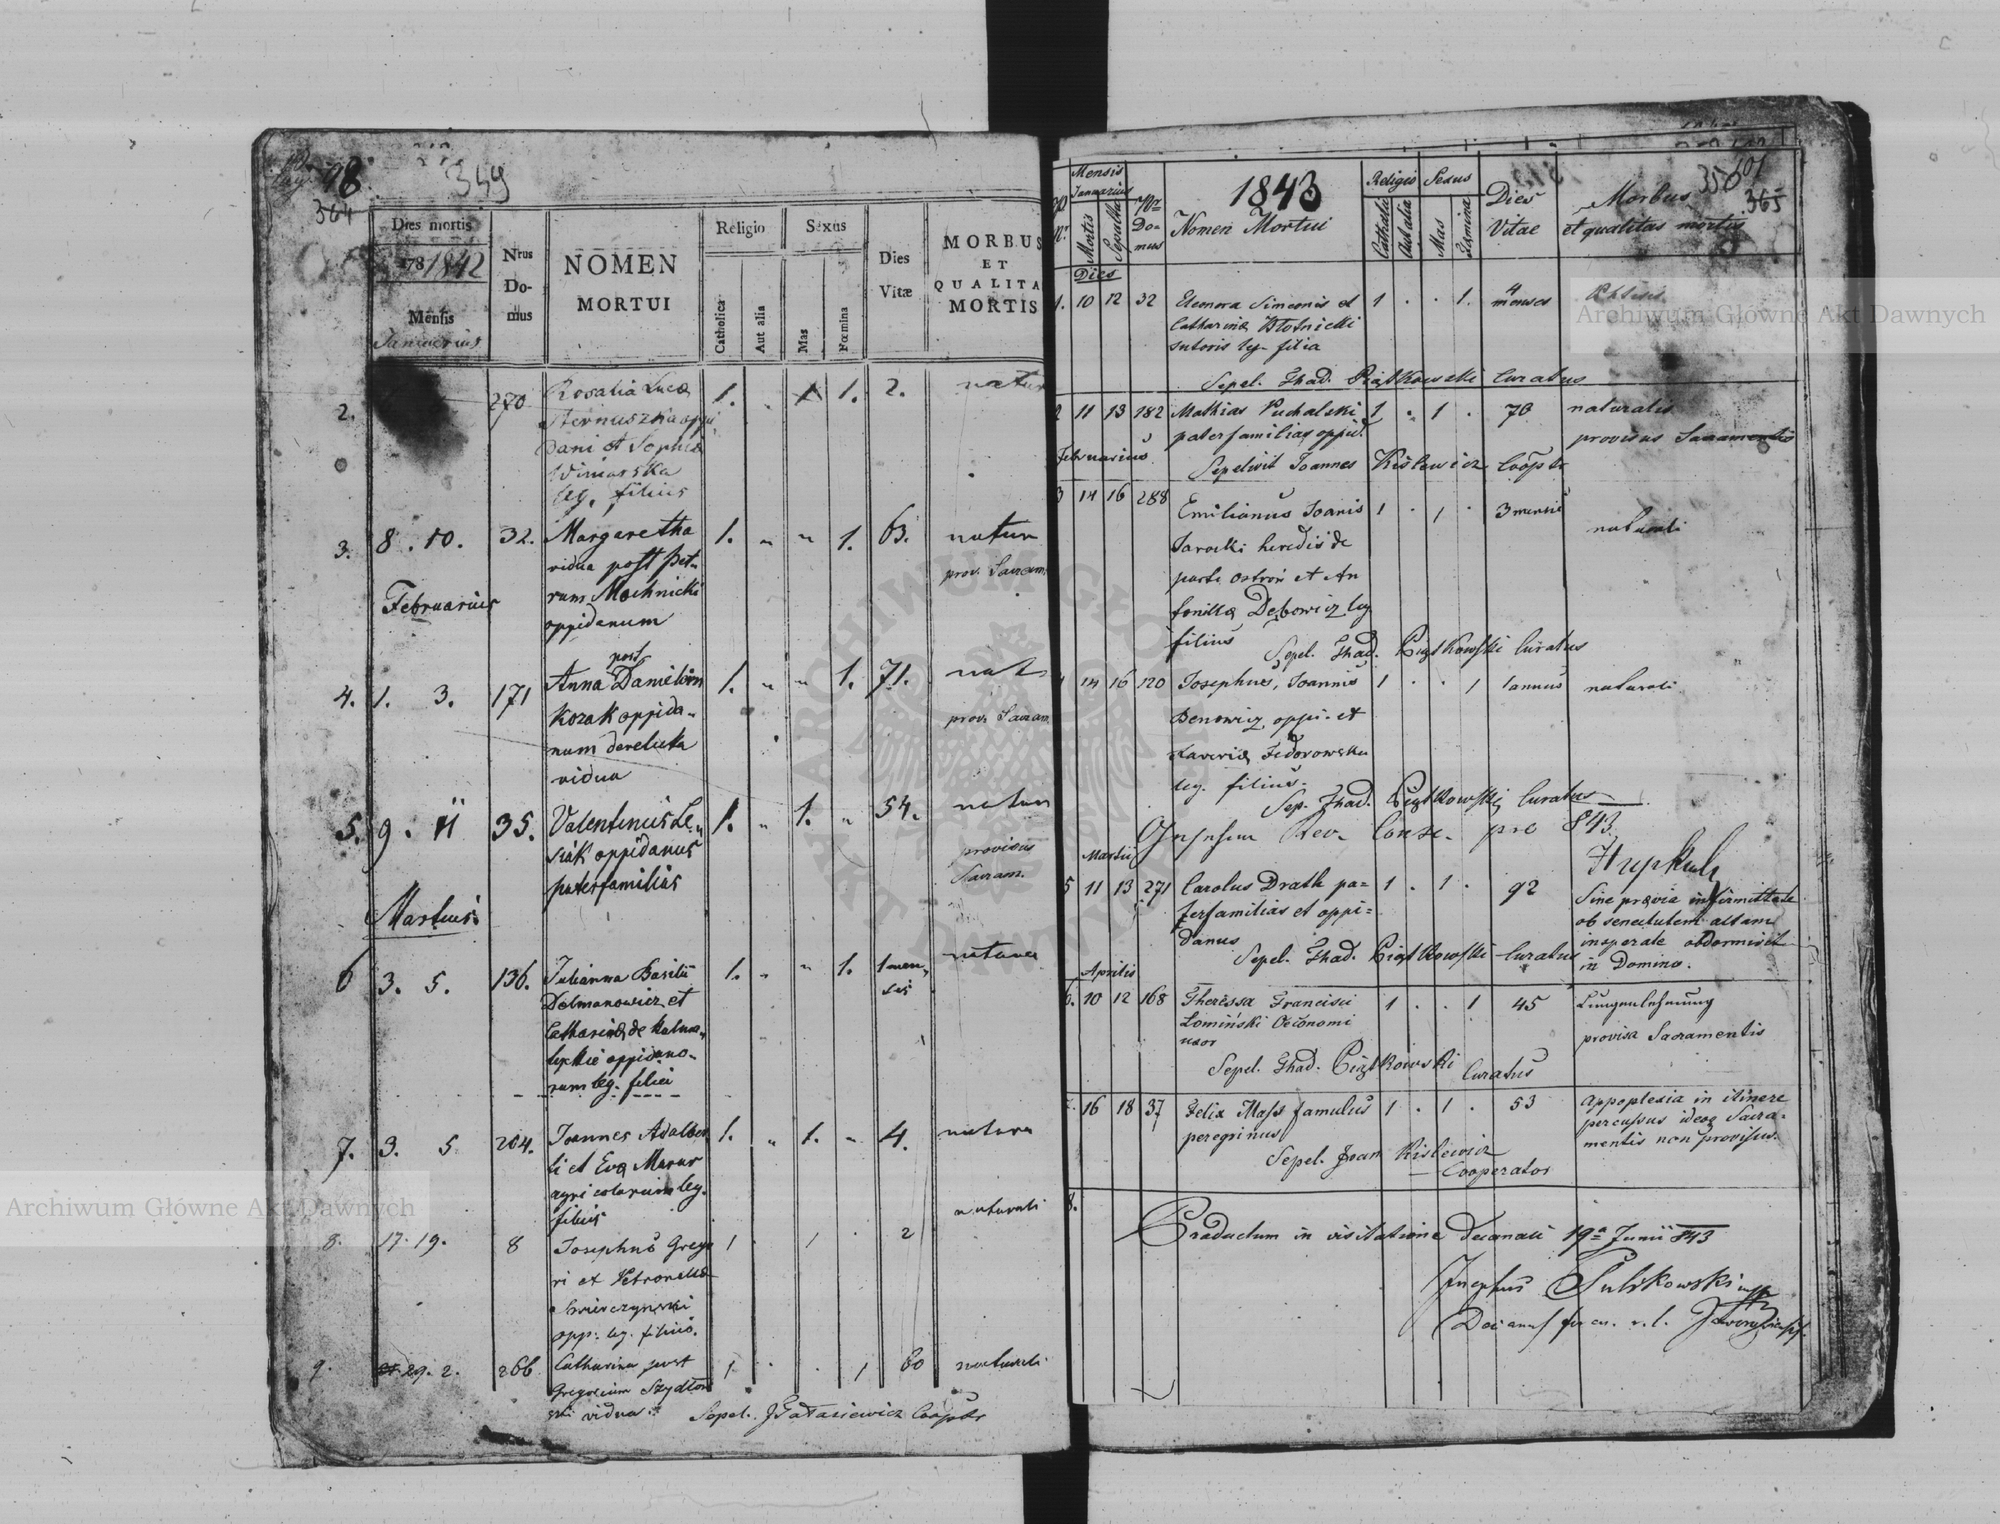 98
349
364
Dies mortis
178 1842
Mensis
Januarius
Nrus
Do-
mus
NOMEN
MORTUI
Religio
Catholica
Aut alia
Sexus
Mas
Fœmina
Dies
Vitæ
MORBUS
ET
QUALITA
MORTIS
2. 270 Rosalia Lucæ 1. . 1 1. 2. natur
dani et Sophia
Winiarska
leg. filius
3. 8. 10. 32. Margaretha 1. " " 1. 63. natur
vidua post Pet- prov. Sacram.
rum Mochnicki
oppidanum
Februarius
4. 1. 3. 171 Anna post Danielem 1. " " 1. 71. nat
Kozak oppida- prov. Sacram
num derelicta
vidua
5. 9. 11 35. Valentinus Le- 1. " 1. " 54. natur
siak oppidanus provisus
paterfamilias Sacram.
Martius
6 3. 5. 136. Julianna Basilii 1. " " 1. 1 men- natura
Dolmanowicz et sis
Catharinæ de
oppidano-
rum leg. filia
7. 3. 5 204. Joannes Adalber 1. " 1. " 4. natura
ti et Eva Mazur
agricolarum leg.
filius
8. 17. 19. 8 Josephus Grego 1 . 1 . 2 naturali
ri et Petronella
Swierczynski
opp. leg. filius.
9. 29. 2. 266 Catharina post 1 . . 1 60 naturali
Gregorium Szydłow
ski vidua
Sepel. J Gałasiewicz Coopr
350 101
365
Mensis
Januarius
Mortis
Sepultu
Nr
Do-
mus
1843
Nomen Mortui
Religio
Catholi
Aut alia
Sexus
Mas
Fœmina
Dies
Vitae
Morbus
et qualitas mortis
Dies
1. 10 12 32 Eleonora Simeonis et 1 . . 1. 4 menses Phtisis
Catharinæ Błotnicki
sutoris leg. filia
Sepel. Thad. Piątkowski Curatus
2 11 13 182 Mathias Puchalski 1 . 1 . 70 naturalis
paterfamilias oppid. provisus Sacramentis
Februarius
Sepelivit Joannes Kislewicz Cooptr
3 14 16 288 Emilianus Joanis 1 . 1 . 3 mensis naturali
Jarocki heredis de
parte Ostroń et An
tonillæ Dębowicz leg
filius
Sepel. Thad. Piątkowski Curatus
14 16 120 Josephus, Joannis 1 . . 1 1 annus naturali
Benowicz oppi. et
Xaveriæ Fedorowska
leg. filius.
Sep. Thad. Piątkowski Curatus
pro 843
Martii
5 11 13 271 Carolus Drath pa= 1 . 1 . 92 Sine prævia infirmitate
terfamilias et oppi= ob senectutem altam
danus insperate obdormivit
in Domino.
Sepel. Thad. Piątkowski Curatus
Aprilis
6. 10 12 168 Theressa Francisci 1 . . 1 45 Lungenlehmung
Łomiński Oeconomi provisa Sacramentis
uxor
Sepel. Thad. Piątkowski Curatus
16 18 37 Felix Mass famulus 1 . 1 . 53 Appoplexia in itinere
peregrinus percussus ideoq Sacra=
mentis non provisus.
Sepel. Joan Kislewicz
Cooperator
8.
Productum in visitatione Decanali 19a Junii 843
Josephus Sulikowski
Archiwum Główne Akt Dawnych
Archiwum Główne Akt Dawnych
ARCHIWUM GŁÓWNE AKT DAWNYCH